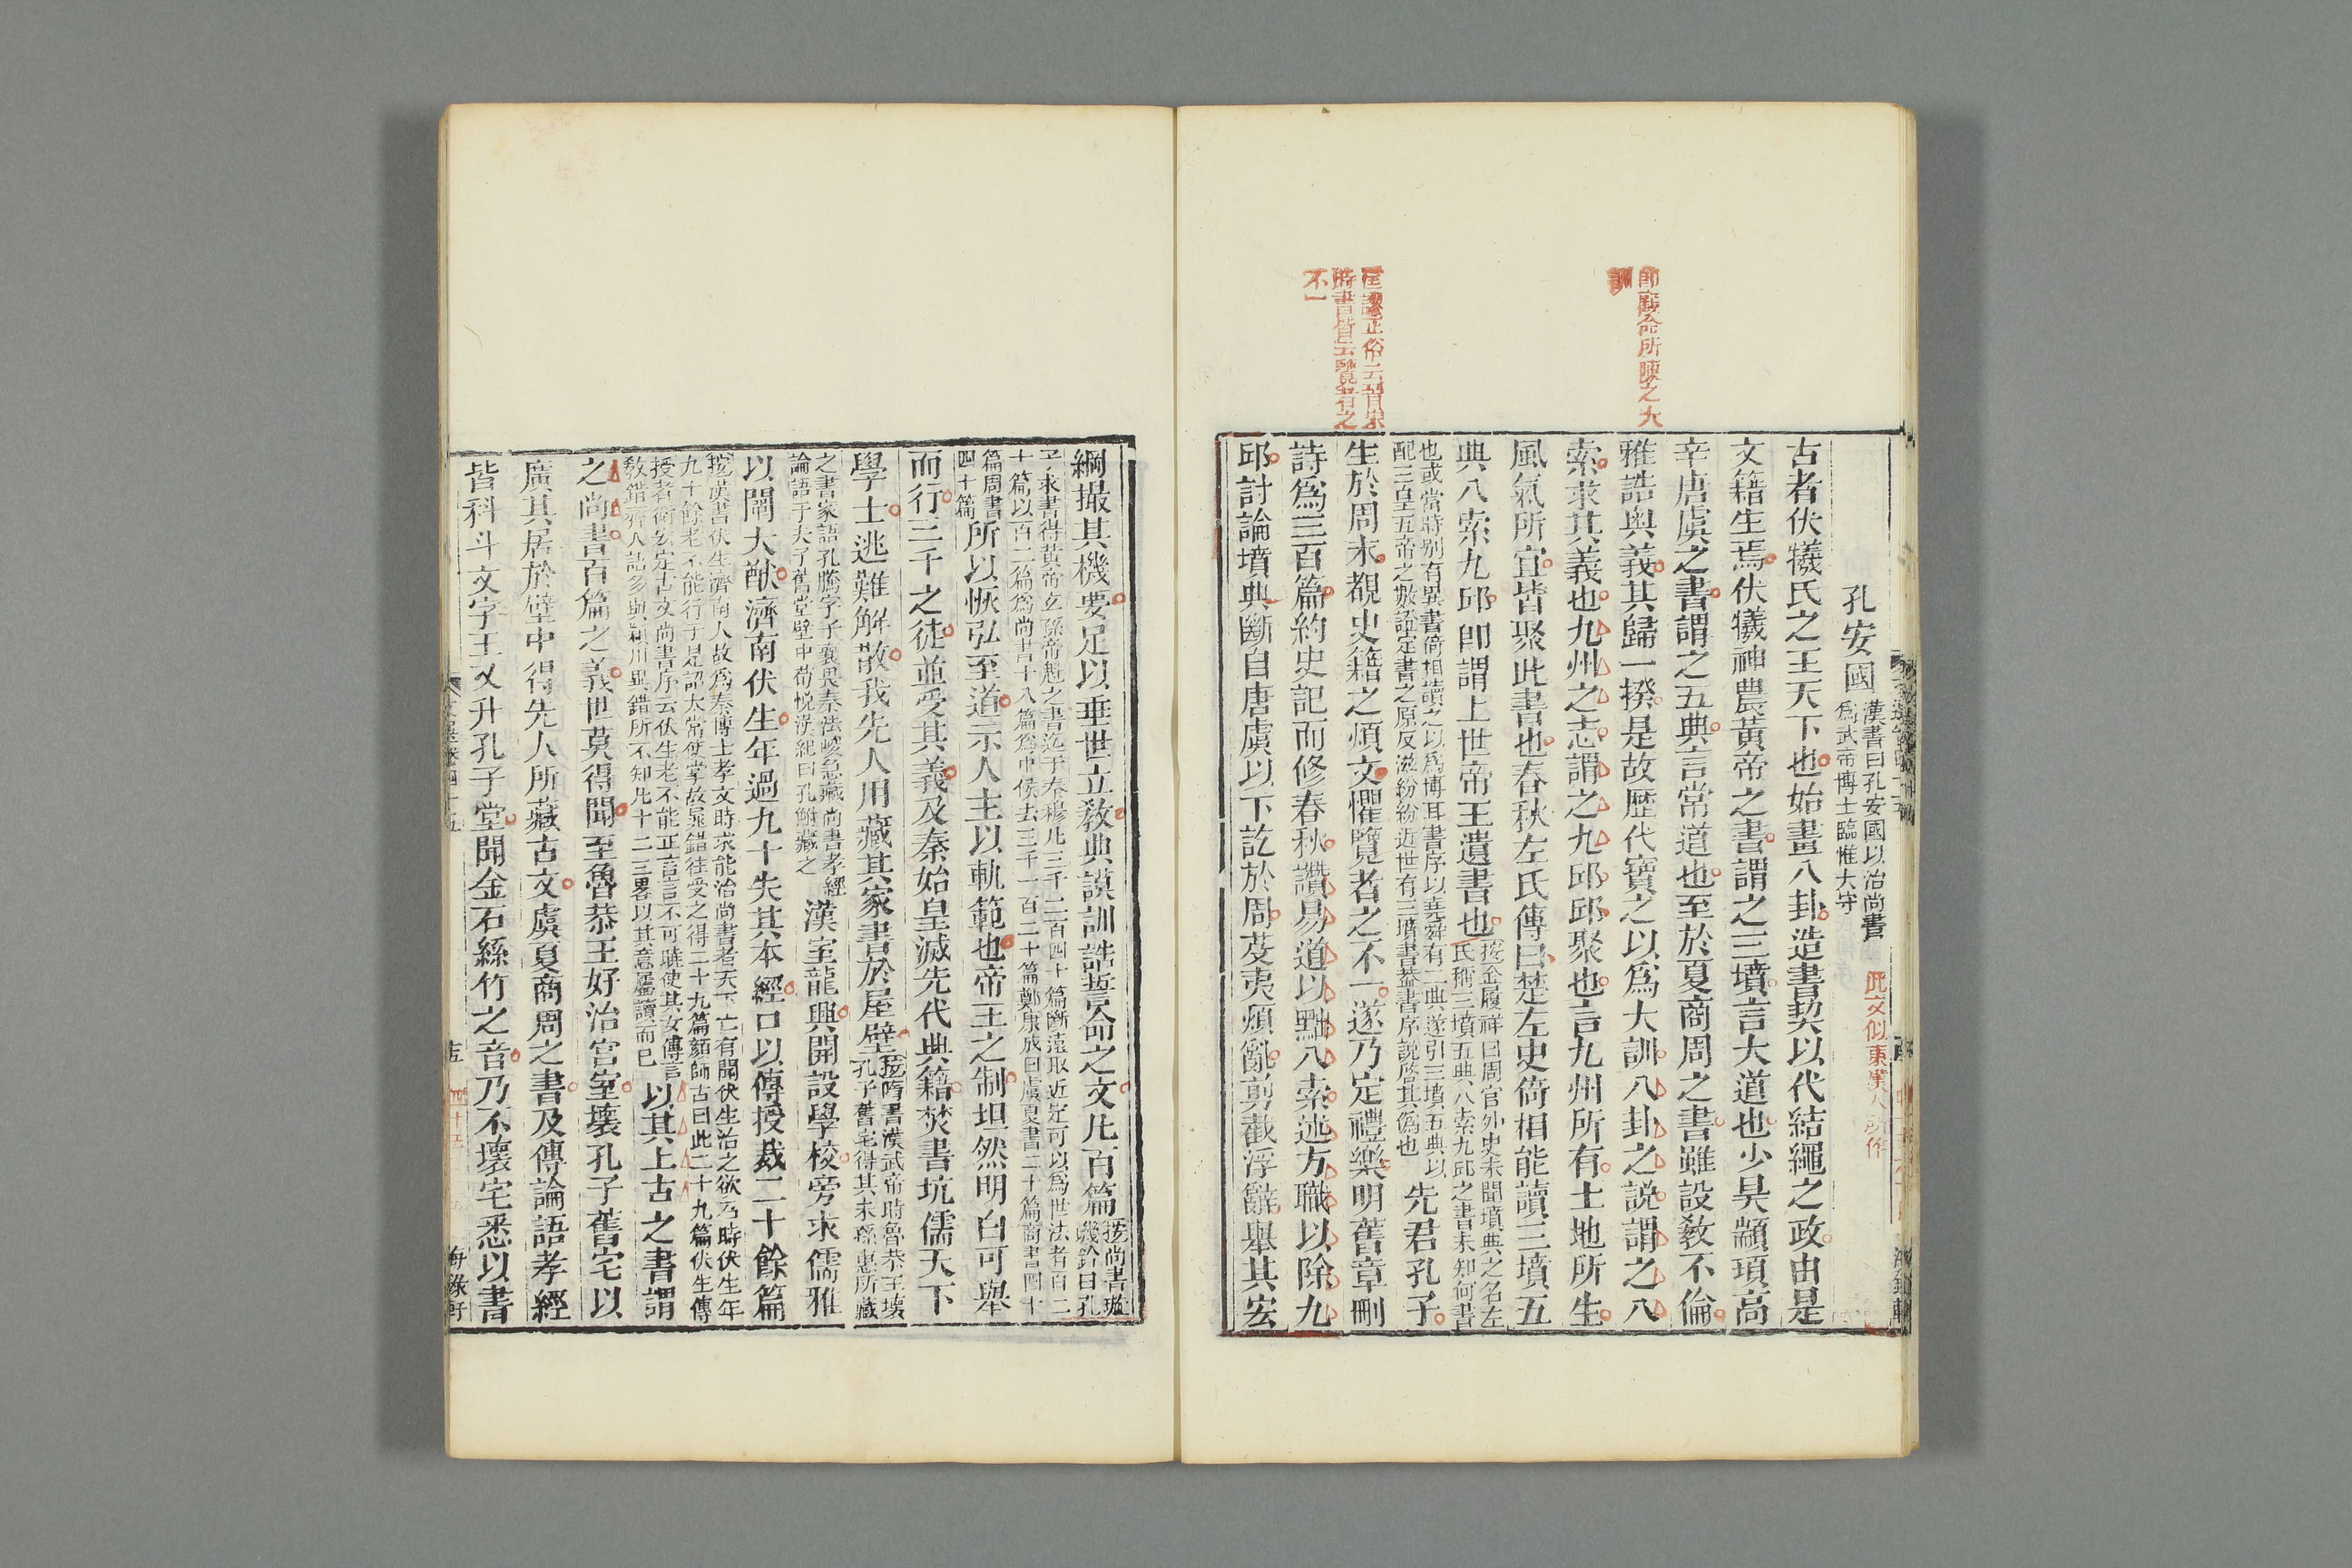 孔安國 漢書曰孔安國以治尚書
爲武帝博士臨惟太守
此文似東漢人所作
古者伏犧氏之王天下也始畫八卦造書契以代結繩之政由是
文籍生焉伏犧神農黃帝之書謂之三墳言大道也少昊顓頊高
辛唐虞之書謂之五典言常道也至於夏商周之書雖設敎不倫
雅誥奧義其歸一揆是故歴代寶之以爲大訓八卦之說謂之八
索求其義也九州之志謂之九邱邱聚也言九州所有土地所生
風氣所宜皆聚此書也春秋左氏傳曰楚左史倚相能讀三墳五
典八索九邱卽謂上世帝王遺書也
按金履祥曰周官外史未聞墳典之名左
氏稱三墳五典八索九邱之書未知何書
也或當時别有異書倚相讀之以爲博耳書序以堯舜有二典遂引三墳五典以
配三皇五帝之數證定書之原反滋紛紛近世有三墳書葢書序說啓其僞也
先君孔子
生於周末覩史籍之煩文懼覽者之不一遂乃定禮樂明舊章刪
詩爲三百篇約史記而修春秋讚易道以黜八索述方職以除九
邱討論墳典斷自唐虞以下訖於周芟夷煩亂剪截浮辭舉其宏
卽顧命所陳之大
訓
時書皆云覽者之
不一
綱撮其機要足以垂世立敎典謨訓誥誓命之文凡百篇
按尚書璇
璣鈐曰孔
子求書得黃帝玄孫帝魁之書迄于秦穆凡三千二百四十篇斷遠取近定可以爲世法者百二
十篇以百二篇爲尚書十八篇爲中候去三千一百二十篇鄭康成曰虞夏書二十篇商書四十
篇周書
四十篇
所以恢弘至道示人主以軌範也帝王之制坦然明白可舉
而行三千之徒並受其義及秦始皇滅先代典籍焚書坑儒天下
學士逃難解散我先人用藏其家書於屋壁
按隋書漢武帝時魯恭王壊
孔子舊宅得其末孫惠所藏
之書家語孔騰字子襄畏秦法峻急藏尚書孝經
論語于夫子舊堂壁中荀悅漢紀曰孔鮒藏之
漢室龍興開設學校旁求儒雅
以闡大猷濟南伏生年過九十失其本經口以傳授裁二十餘篇
按漢書伏生濟南人故爲秦博士孝文時求能治尚書者天下亡有聞伏生治之欲召時伏生年
九十餘老不能行于是詔太常使掌故晁錯往受之得二十九篇顏師古曰此二十九篇伏生傳
授者衛宏定古文尚書序云伏生老不能正言言不可曉使其女傳言
敎錯齊人語多與潁川異錯所不知凡十二三畧以其意屬讀而已
以其上古之書謂
之尚書百篇之義世莫得聞至魯恭王好治宮室壞孔子舊宅以
廣其居於壁中得先人所藏古文虞夏商周之書及傳論語孝經
皆科斗文字王又升孔子堂聞金石絲竹之音乃不壞宅悉以書
文選卷四十五
四十五
海錄軒